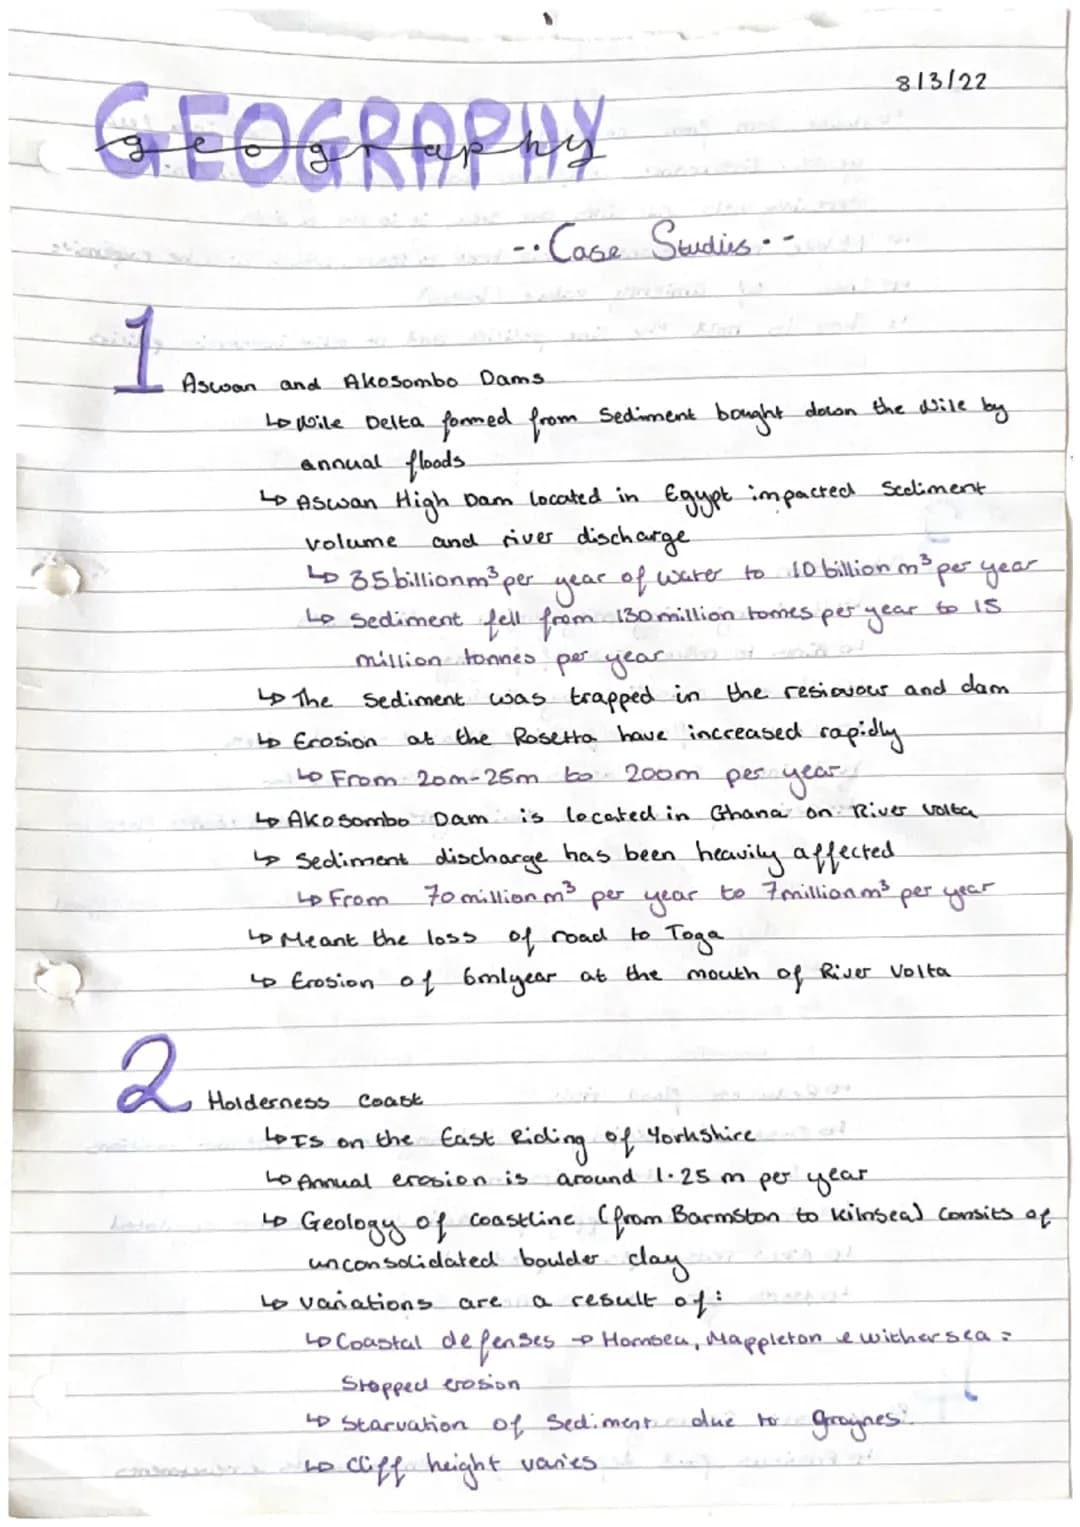 8/3/22
GEOGRAPHY
geography
-·Case Studies·-
1
Aswan and Akosombo Dams
↳ Nile Delta formed from Sediment bought down the Nile by
annual floods
↳ Aswan High Dam located in Egypt impacted Sediment
volume and river discharge
↳ 35 billion m³ per year of water to 10 billion m³ per year
↳ Sediment fell from 130 million tonnes per year to 15
million tonnes per year
↳ The Sediment was trapped in the resiovour and dam
↳ Erosion at the Rosetta have increased rapidly
↳ From 20m-25m to 200m per year
↳ Akosombo Dam is located in Ghana on River Volta
↳ Sediment discharge has been heavily affected
↳ From 70 million m³ per year to 7 million m³ per year
↳ Meant the loss of road to Toga
↳ Erosion of 6m/year at the mouth of River Volta
2
Holderness Coast
↳ Is on the East Riding of Yorkshire
↳ Annual erosion is around 1.25 m per year
↳ Geology of coastline (from Barmston to Kilnsea) consits of
unconsolidated boulder clay
↳ variations are a result of:
↳ Coastal defenses → Hornsea, Mappleton & withersea =
Stopped erosion
↳ Starvation of Sediment due to groynes
↳ Cliff height varies